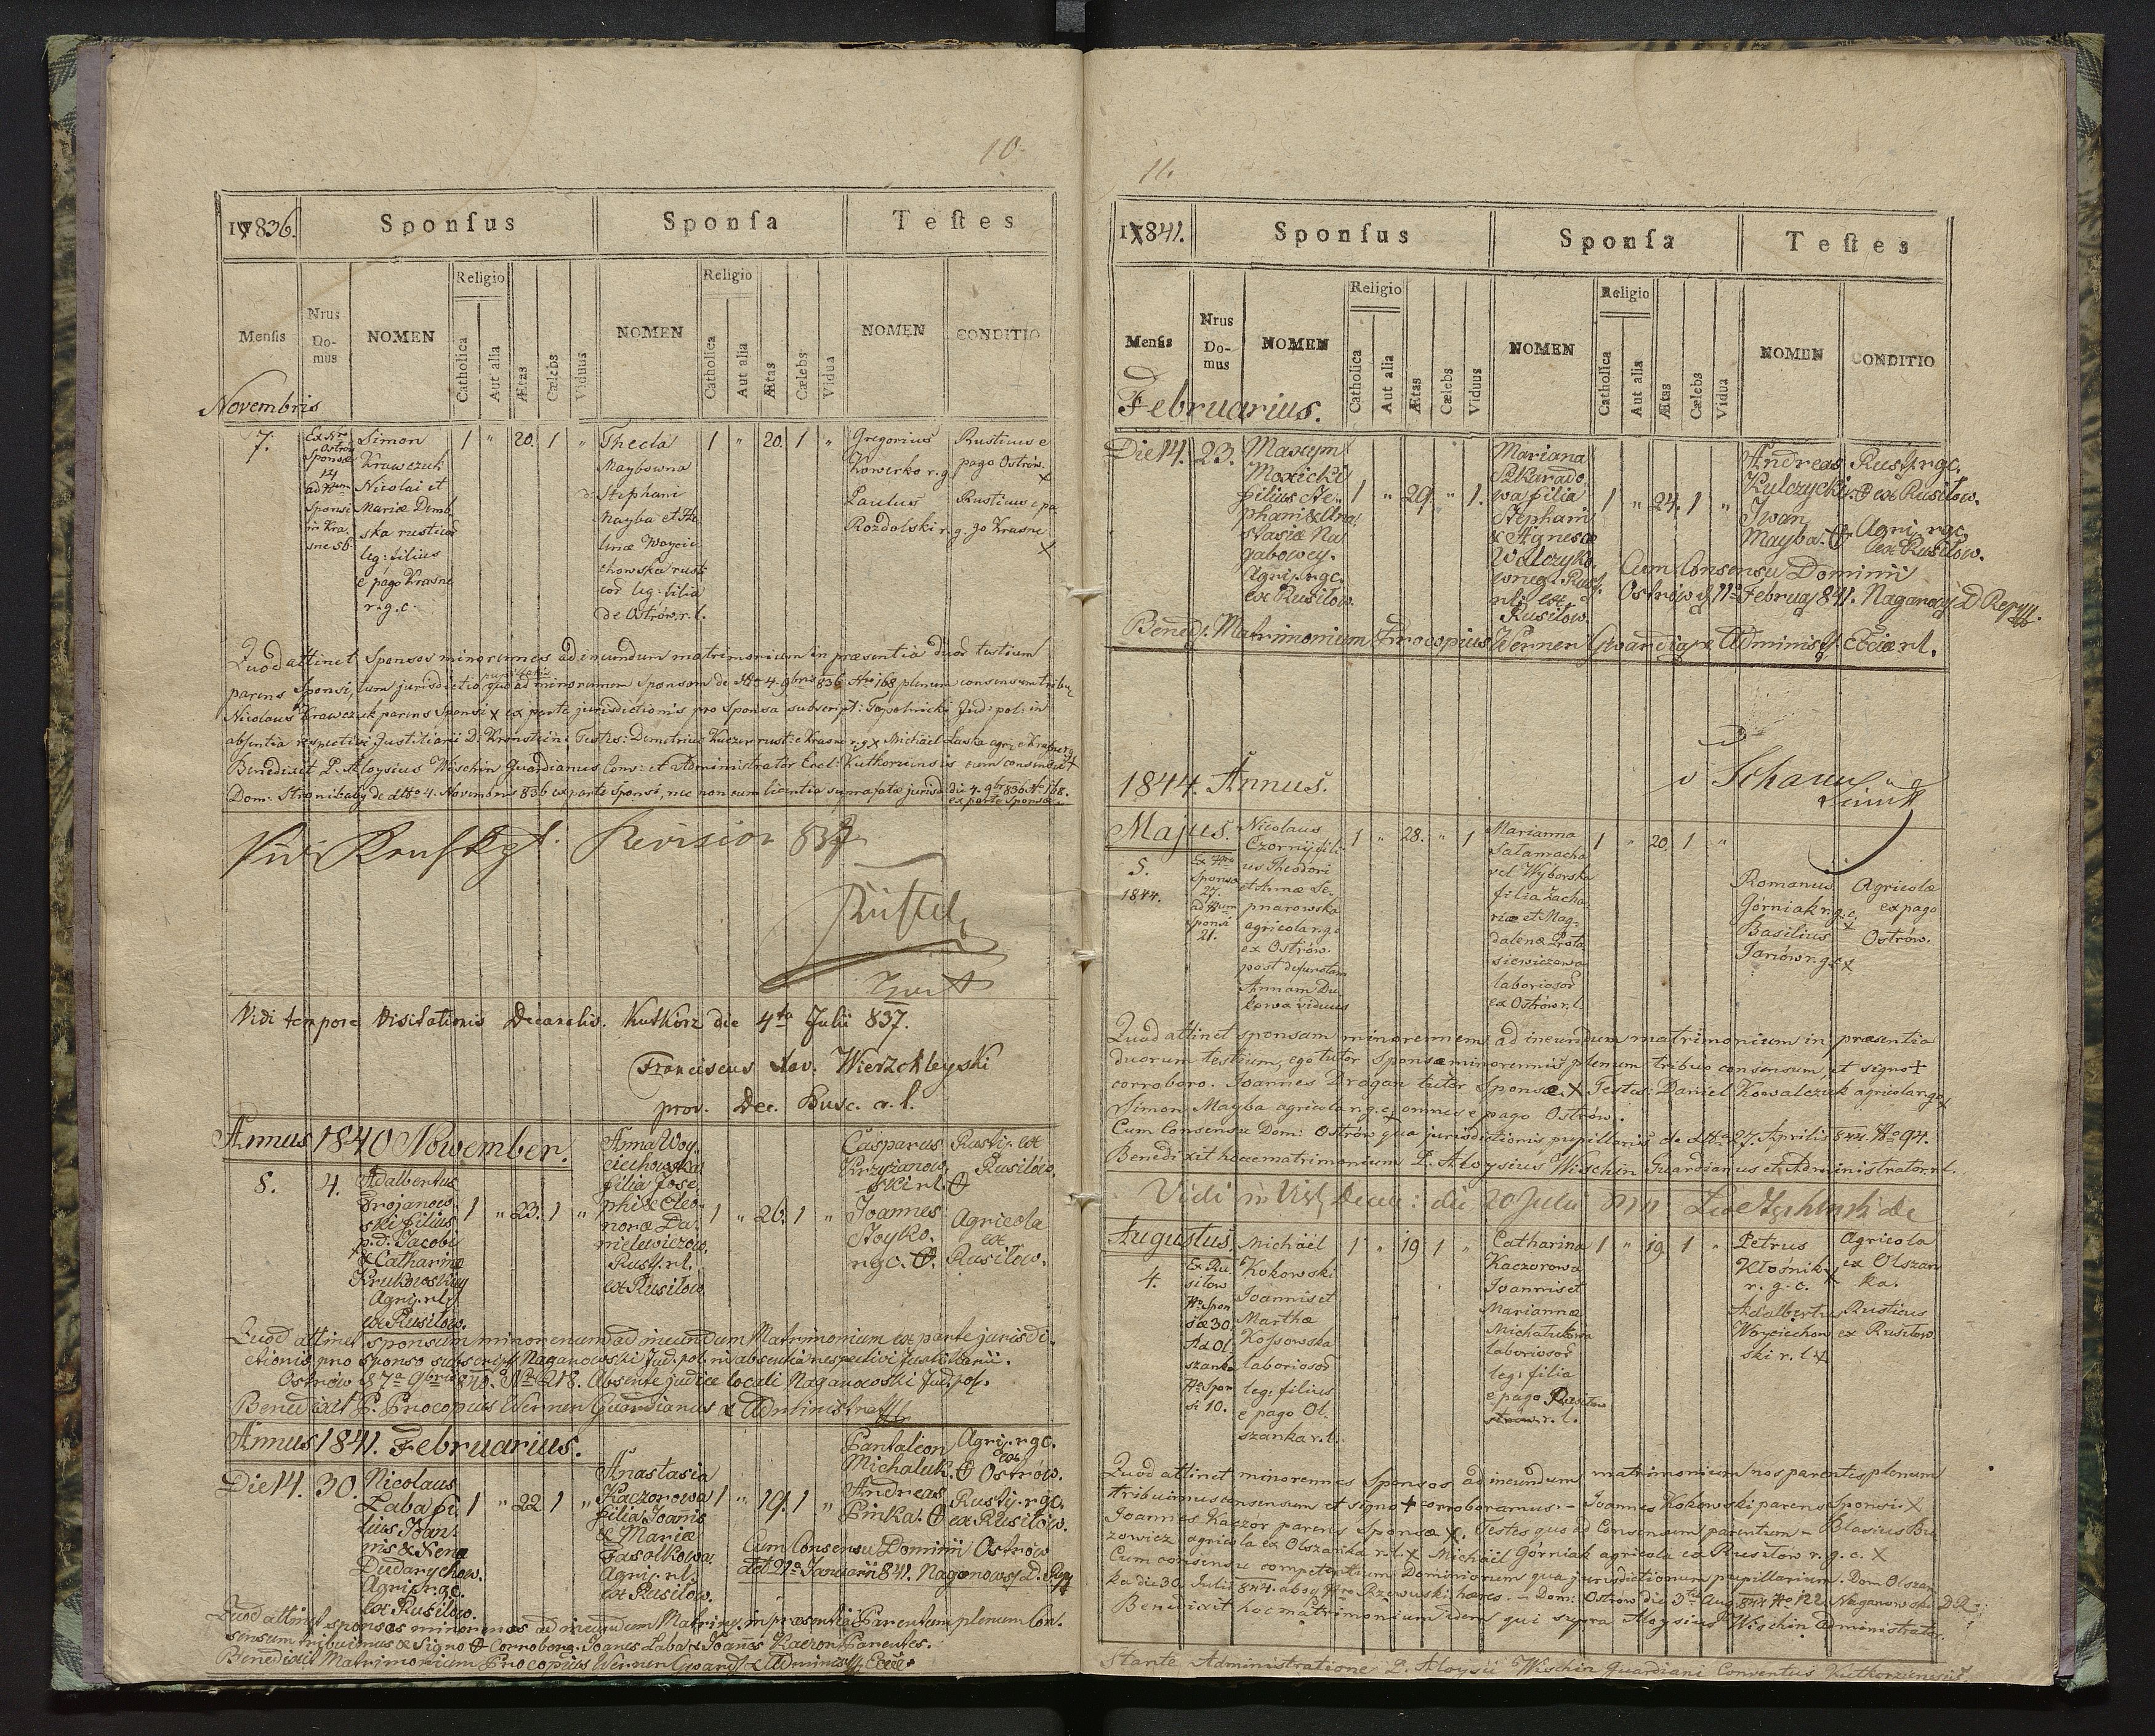 10
17836.
Sponſus
Sponſa
Teſtes
Menſis
Nrus Domus
NOMEN
Religio
Catholica
Aut alia
Ætas
Cælebs
Viduus
NOMEN
Religio
Catholica
Aut alia
Ætas
Cælebs
Vidua
NOMEN
CONDITIO
Novembris
7.
Ex Nr
Ostrow
Sponsæ
14
ad Num
Sponsi
in Kra-
sne 56.
Simon
Krawczuk
Nicolai et
Mariæ Demb-
ska rusticor
leg: filius
e pago Krasne
r. g. c.
1 " 20. 1 "
Thecla
Maybowna
Stephani
Mayba et
Woycie-
chowska rusti
cor leg: filia
de Ostrów r. l.
1 " 20. 1 "
Gregorius
Kowerko r. g
Paulus
Rozdolski r. g.
Rusticus e
pago Ostrów.
x
Rusticus e pa
go Krasne
x
Quod attinet Sponsos minorennes ad ineundum matrimonium in præsentia duor testium
parens Sponsi, tum jurisdictio pupillaris quoad minorennem Sponsam de dto 4. 9bris 836 Nro 168 plenum consensum tribu
Nicolaus Krawczuk parens Sponsi x ex parte jurisdictionis pro Sponsa subscript: Topolnicki Jud: pol: in
absentia respectivi Justitiarii D: Kronstein. Testes: Demetrius Kuczer rust: e Krasne r. g. x Michäel Laska agr: e Krasne r. g.
Benedixit P. Aloysius Wischin Guardianus Conv: et Administrator Eccl: Kuthorzensis cum consensu
Dom: de dtto 4. Novembris 836 ex parte Sponsi, nec non cum licentia suprafatæ jurisd: die 4. 9br 836 N 168.
ex parte Sponsæ
Revision 837
Vidi tempore Visitationis Decanalis. Kutkorz die 4ta Julii 837.
Franciscus Xav. Wierzchleyski
prov. Dec. Busc. r. l.
Annus 1840 November.
8.
4.
Adalbertus
Trojanow-
ski filius
p. d. Jacobi
& Catharinæ
Krukowskiey
Agri. rl.
ex Rusiłow.
1 " 23. 1 "
Anna Woy-
ciechowska
filia Jose-
phi & Eleo-
noræ Da-
nielewiczow.
Rusti. rl.
ex Rusiłow
1 " 26. 1 "
Casparus
Krzyżanow-
ski rl.
Joannes
Stoyko.
rgc.
Rusti. ex
Rusiłow.
Agricola
ex
Rusiłow.
Quod attinet sponsum minorennum ad ineundum Matrimonium ex parte jurisdi-
ctionis pro sponso subscript. Naganowski Jud. pol. in absentia respectivi Justitiarii.
Ostrów d 7a 9bris 840. N 218. Absente judice locali Naganowski Jud. pol.
Benedixit P. Procopius Werner Guardianus & Administrator
Annus 1841. Februarius.
Die 14.
30.
Nicolaus
Łaba fi-
lius Joan-
nis & Nena
Dudarychow.
Agri. r. gc.
ex Rusiłow.
1 " 22 1 "
Anastasia
Kaczorowa
filia Joanis
& Mariæ
Fasolkowa.
Agri. rl.
ex Rusiłow.
1 " 19. 1 "
Pantaleon
Michaluk.
Andreas
Pinka.
Agri. rgc.
ex
Ostrów.
Rusti. rgc.
ex Rusiłow.
Cum Consensu Dominii Ostrów
21a Januarii 841. Naganowski D.
Quod attinet sponsos minorennes ad ineundum Matrimo. in præsentia Parentum plenum Con-
sensum tribuimus & Signo Corrobora. Joanes Łaba & Joannes Kaczor Parentes.
Benedixit Matrimonium Procopius Werner Guard. & Administr. Eccle.
11.
17841.
Sponſus
Sponſa
Teſtes
Menſis
Nrus Domus
NOMEN
Religio
Catholica
Aut alia
Ætas
Cælebs
Viduus
NOMEN
Religio
Catholica
Aut alia
Ætas
Cælebs
Vidua
NOMEN
CONDITIO
Februarius.
Die 14.
23.
Maxym
Moxicki
filius Ste-
phani & Ana-
stasiæ Na-
gabowey.
Agri. rgc.
ex Rusiłow.
1 " 29. " 1.
Mariana
Szkarado-
wa filia
Stephani
& Agnesæ
Walczyko-
wney Rust.
rl. ex
Rusiłow.
1 " 24. 1 "
Andreas
Kulczycki.
Iwan
Mayba.
Rusti. rgc.
ex Rusiłow.
Agri. rgc.
ex Rusiłow.
Cum Consensu Dominii
Ostrów d 11a Februa. 841. Naganows. D.
Bened. Matrimonium Procopius Werner Guardia. & Administ. Eccle rl.
1844. Annus.
Majus.
5.
1844.
Ex Nro
Sponsæ
27.
ad Num
Sponsi
21.
Nicolaus
Czorny fili-
us Theodori
et Annæ Se-
pnarowska
agricola r. g. c
ex Ostrów.
post defunctam
Annam Du-
kowa viduus
1 " 28. " 1
Marianna
Sałamacha
vel Wyborska
filia Zacha-
riæ et Mag-
dalenæ Prota-
siewiczowa
laboriosor
ex Ostrów r. l.
1 " 20. 1 "
Romanus
Górniak r. g. c.
x
Basilius
Jarów r. g. c x
Agricolæ
ex pago
Ostrów.
Quod attinet sponsam minorennem ad ineundum matrimonium in præsentia
duorum testium, ego tutor Sponsæ minorennis plenum tribuo consensum et signo +
corroboro. Joannes Dragan tutor Sponsæ. x Testes: Daniel Kowalczuk agricola r. g. x
Simon Mayba agricola r. g. c. x omnes e pago Ostrów.
Cum Consensu Dom: Ostrów qua jurisdictionis pupillaris de dtto 27. Aprilis 844. Nro 94.
Benedixit hocce matrimonium P. Aloysius Wischin Guardianus et Administrator r. l.
Vidi in Vist. Decan: die 20 Julii
Augustus.
4.
Ex Ru-
siłow
No Spon
sæ 30.
Ad Ol-
szanka
No Spon
si 10.
Michäel
Kokowski
Joannis et
Marthæ
Kossowska
laboriosor
leg: filius
e pago Ol-
szanka r. l.
1 " 19 1 "
Catharina
Kaczorowa
Joannis et
Mariannæ
Michalukowa
laboriosor
leg: filia
e pago Rusiłow
r. l.
1 " 19 1 "
Petrus
Kłośnik
r. g. c. x
Adalbertus
Woyciechow-
ski r. l. x
Agricola
ex Olszan-
ka.
Rusticus
ex Rusiłow
Quod attinet minorennes Sponsos ad ineundum matrimonium nos parentes plenum
tribuimus consensum et signo + corroboramus. - Joannes Kokowski parens Sponsi. x
Joannes Kaczór parens Sponsæ x. Testes quoad Consensum parentum - Blasius Bu-
zowicz agricola ex Olszanka r. l. x Michäel Górniak agricola ex Rusiłow r. g. c. x
Cum consensu competentium Dominiorum qua jurisdictionum pupillarium. Dom Olszan-
ka die 30. Julii 844. Rzewuski hæres. - Dom: Ostrow die 3tia Aug. 844 No 122. Naganowski D. R.
Benedixit hoc matrimonium idem qui supra Aloysius Wischin administrator.
Stante Administratione P. Aloysii Wischin Guardiani Conventus Kutkorzensis.